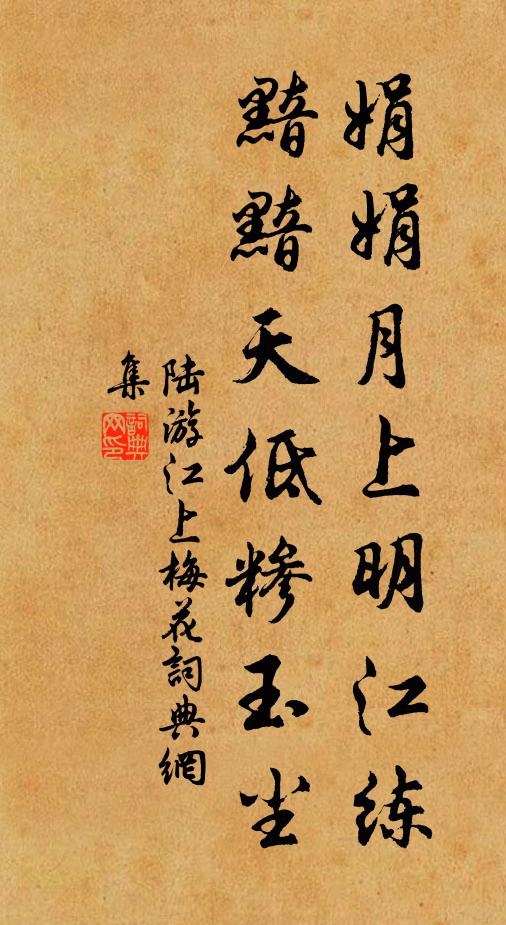 娟娟月上明江练
黯黯天低糁玉尘
陆游江上梅花詞典網
集
詞典网印